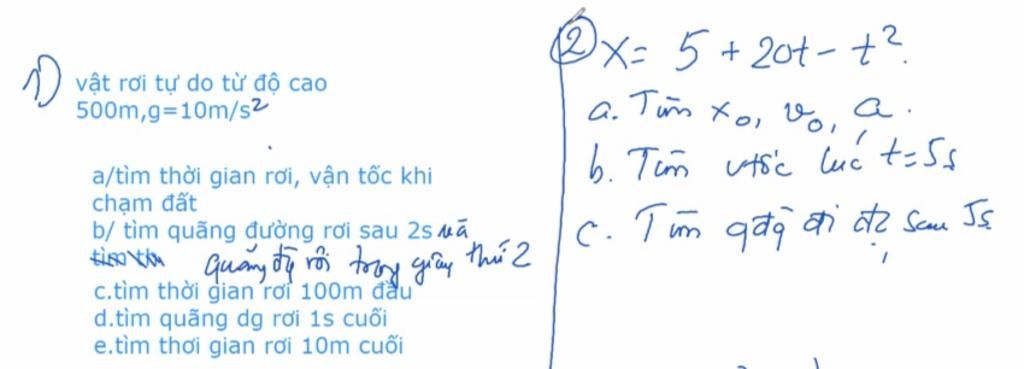 1)
vật rơi tự do từ độ cao
500m,g=10m/s²
a/tìm thời gian rơi, vận tốc khi
chạm đất
b/ tìm quãng đường rơi sau 2s và
quãng đg rơi trong giây thứ 2
c.tìm thời gian rơi 100m đầu
d.tìm quãng dg rơi 1s cuối
e.tìm thơi gian rơi 10m cuối
② x = 5 + 20t - t².
a. Tìm x₀, v₀, a.
b. Tìm vtốc lúc t=5s
c. Tìm qđg đi đc sau 5s